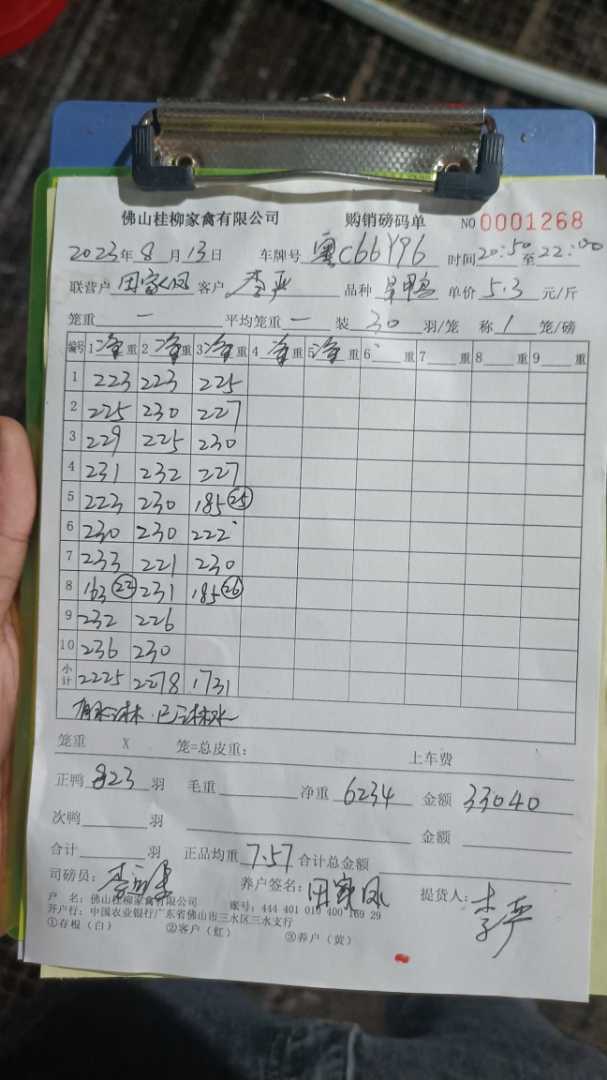 佛山桂柳家禽有限公司 购销磅码单 NO 0001268
2023年8月13日 车牌号 粤C66Y96 时间20:50至22:00
联营户 田家凤 客户 李严 品种 旱鸭 单价 5.3 元/斤
笼重 一 平均笼重 一 装 30 羽/笼 称 1 笼/磅
编号 1净重 2净重 3净重 4净重 5净重 6重 7重 8重 9重
1 223 223 225
2 225 230 227
3 229 225 230
4 231 232 227
5 223 230 185㉕
6 230 230 222
7 233 221 230
8 163㉒ 231 185㉖
9 232 226
10 236 230
小计 2225 2278 1731
笼重 X 笼=总皮重: 上车费
正鸭 823 羽 毛重 净重 6234 金额 33040
次鸭 羽 金额
合计 羽 正品均重 7.57 合计总金额
司磅员: 养户签名: 田家凤 提货人: 李严
户 名: 佛山桂柳家禽有限公司 账号: 444 401 010 400 169 29
开户行: 中国农业银行广东省佛山市三水区三水支行
①存根(白) ②客户(红) ③养户(黄)